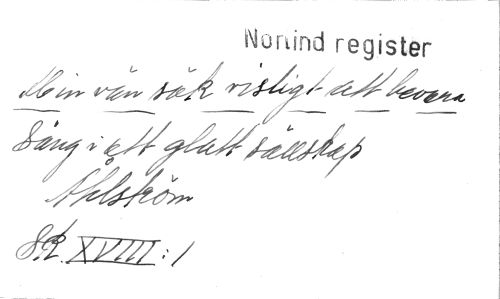 Nonind register
Min vän sök visligt att bevara
Sång i ett glatt sällskap
Åhlström
SR. XVIII:1